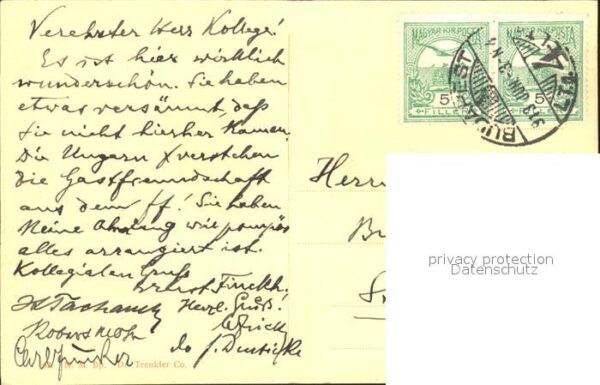 Verehrter Herr Kollege!
Es ist hier wirklich
wunderschön. Sie haben
etwas versäumt, daß
Sie nicht hierher kamen.
Die Ungarn verstehen
die Gastfreundschaft
aus dem ff! Sie haben
keine Ahnung wie pompös
alles arrangiert ist.
Kollegialen Gruß
Ernst Finckh.
Herzl. Gruß!
Robert
Carl
Trenkler Co.
MAGYAR KIR. POSTA
MAGYAR KIR. POSTA
5
5
FILLÉR
BUDAPEST
Herrn
privacy protection
Datenschutz